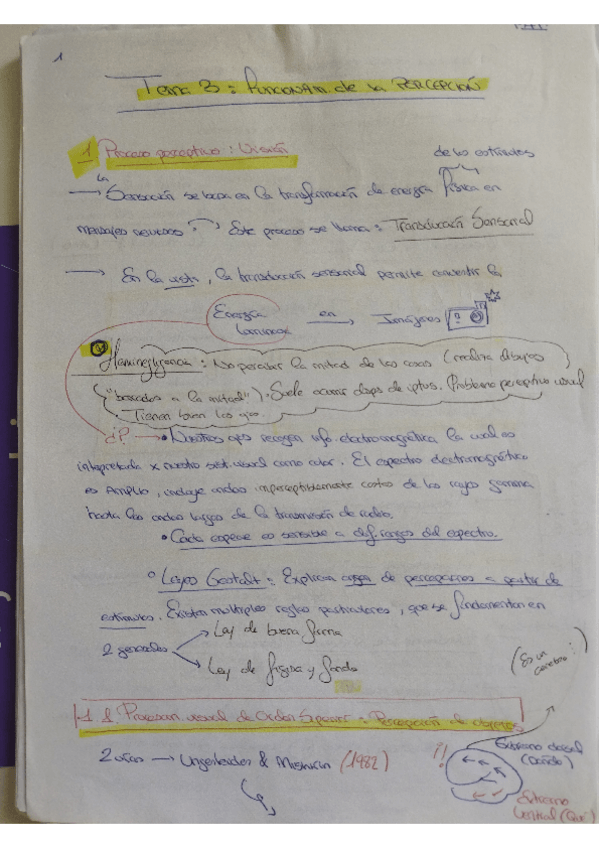 1
Tema 3: FUNCIONAM de la PERCEPCIÓN
1 Proceso perceptivo: Visión
de los estímulos
La
→ Sensación se basa en la transformación de energía física en
mensajes neuronales. Este proceso se llama: Transducción Sensorial
→ En la vista, la transducción sensorial permite convertir la
Energía luminosa → en Imágenes
Heminegligencia: No perciben la mitad de las cosas (realiza dibujos
"basados a la mitad"). Suele ocurrir desps de ictus. Problema perceptivo visual
Tienen bien los ojos.
¿? → • Nuestros ojos recogen info electromagnética la cual es
interpretada x nuestro sist. visual como color. El espectro electromagnético
es AMPLIO, incluye ondas imperceptiblemente cortas de los rayos gamma
hasta las ondas largas de la transmisión de radio.
• Cada especie es sensible a dif. rangos del espectro.
• Leyes Gestalt: Explican de percepciones a partir de
estímulos. Existen múltiples reglas particulares, que se fundamentan en
2 generales
Ley de buena forma
Ley de figura y fondo
(Es un cerebro :)
1.1 Procesam visual de Orden Superior: Percepción de objetos
2 vías → Ungerleider & Mishkin (1982)
¡!
Extremo dorsal (Dónde)
Extremo Ventral (Qué)